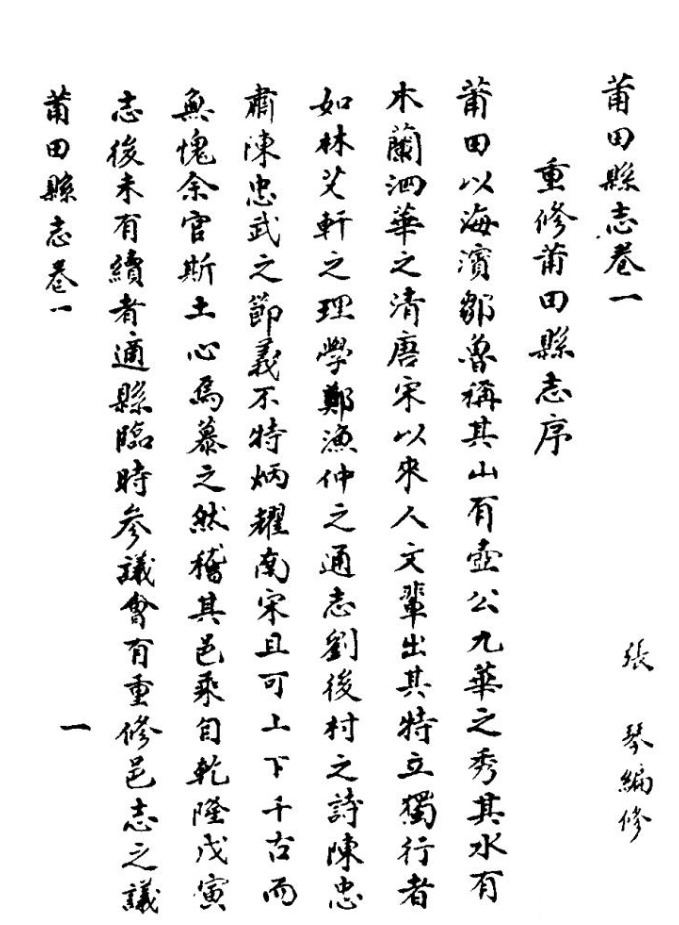 莆田縣志卷一
張琴編修
重修莆田縣志序
莆田以海濱鄒魯稱其山有壺公九華之秀其水有
木蘭泗華之清唐宋以來人文輩出其特立獨行者
如林艾軒之理學鄭漁仲之通志劉後村之詩陳忠
肅陳忠武之節義不特炳耀南宋且可上下千古而
無愧余官斯土心焉慕之然稽其邑乘自乾隆戊寅
志後未有續者適縣臨時參議會有重修邑志之議
莆田縣志卷一
一